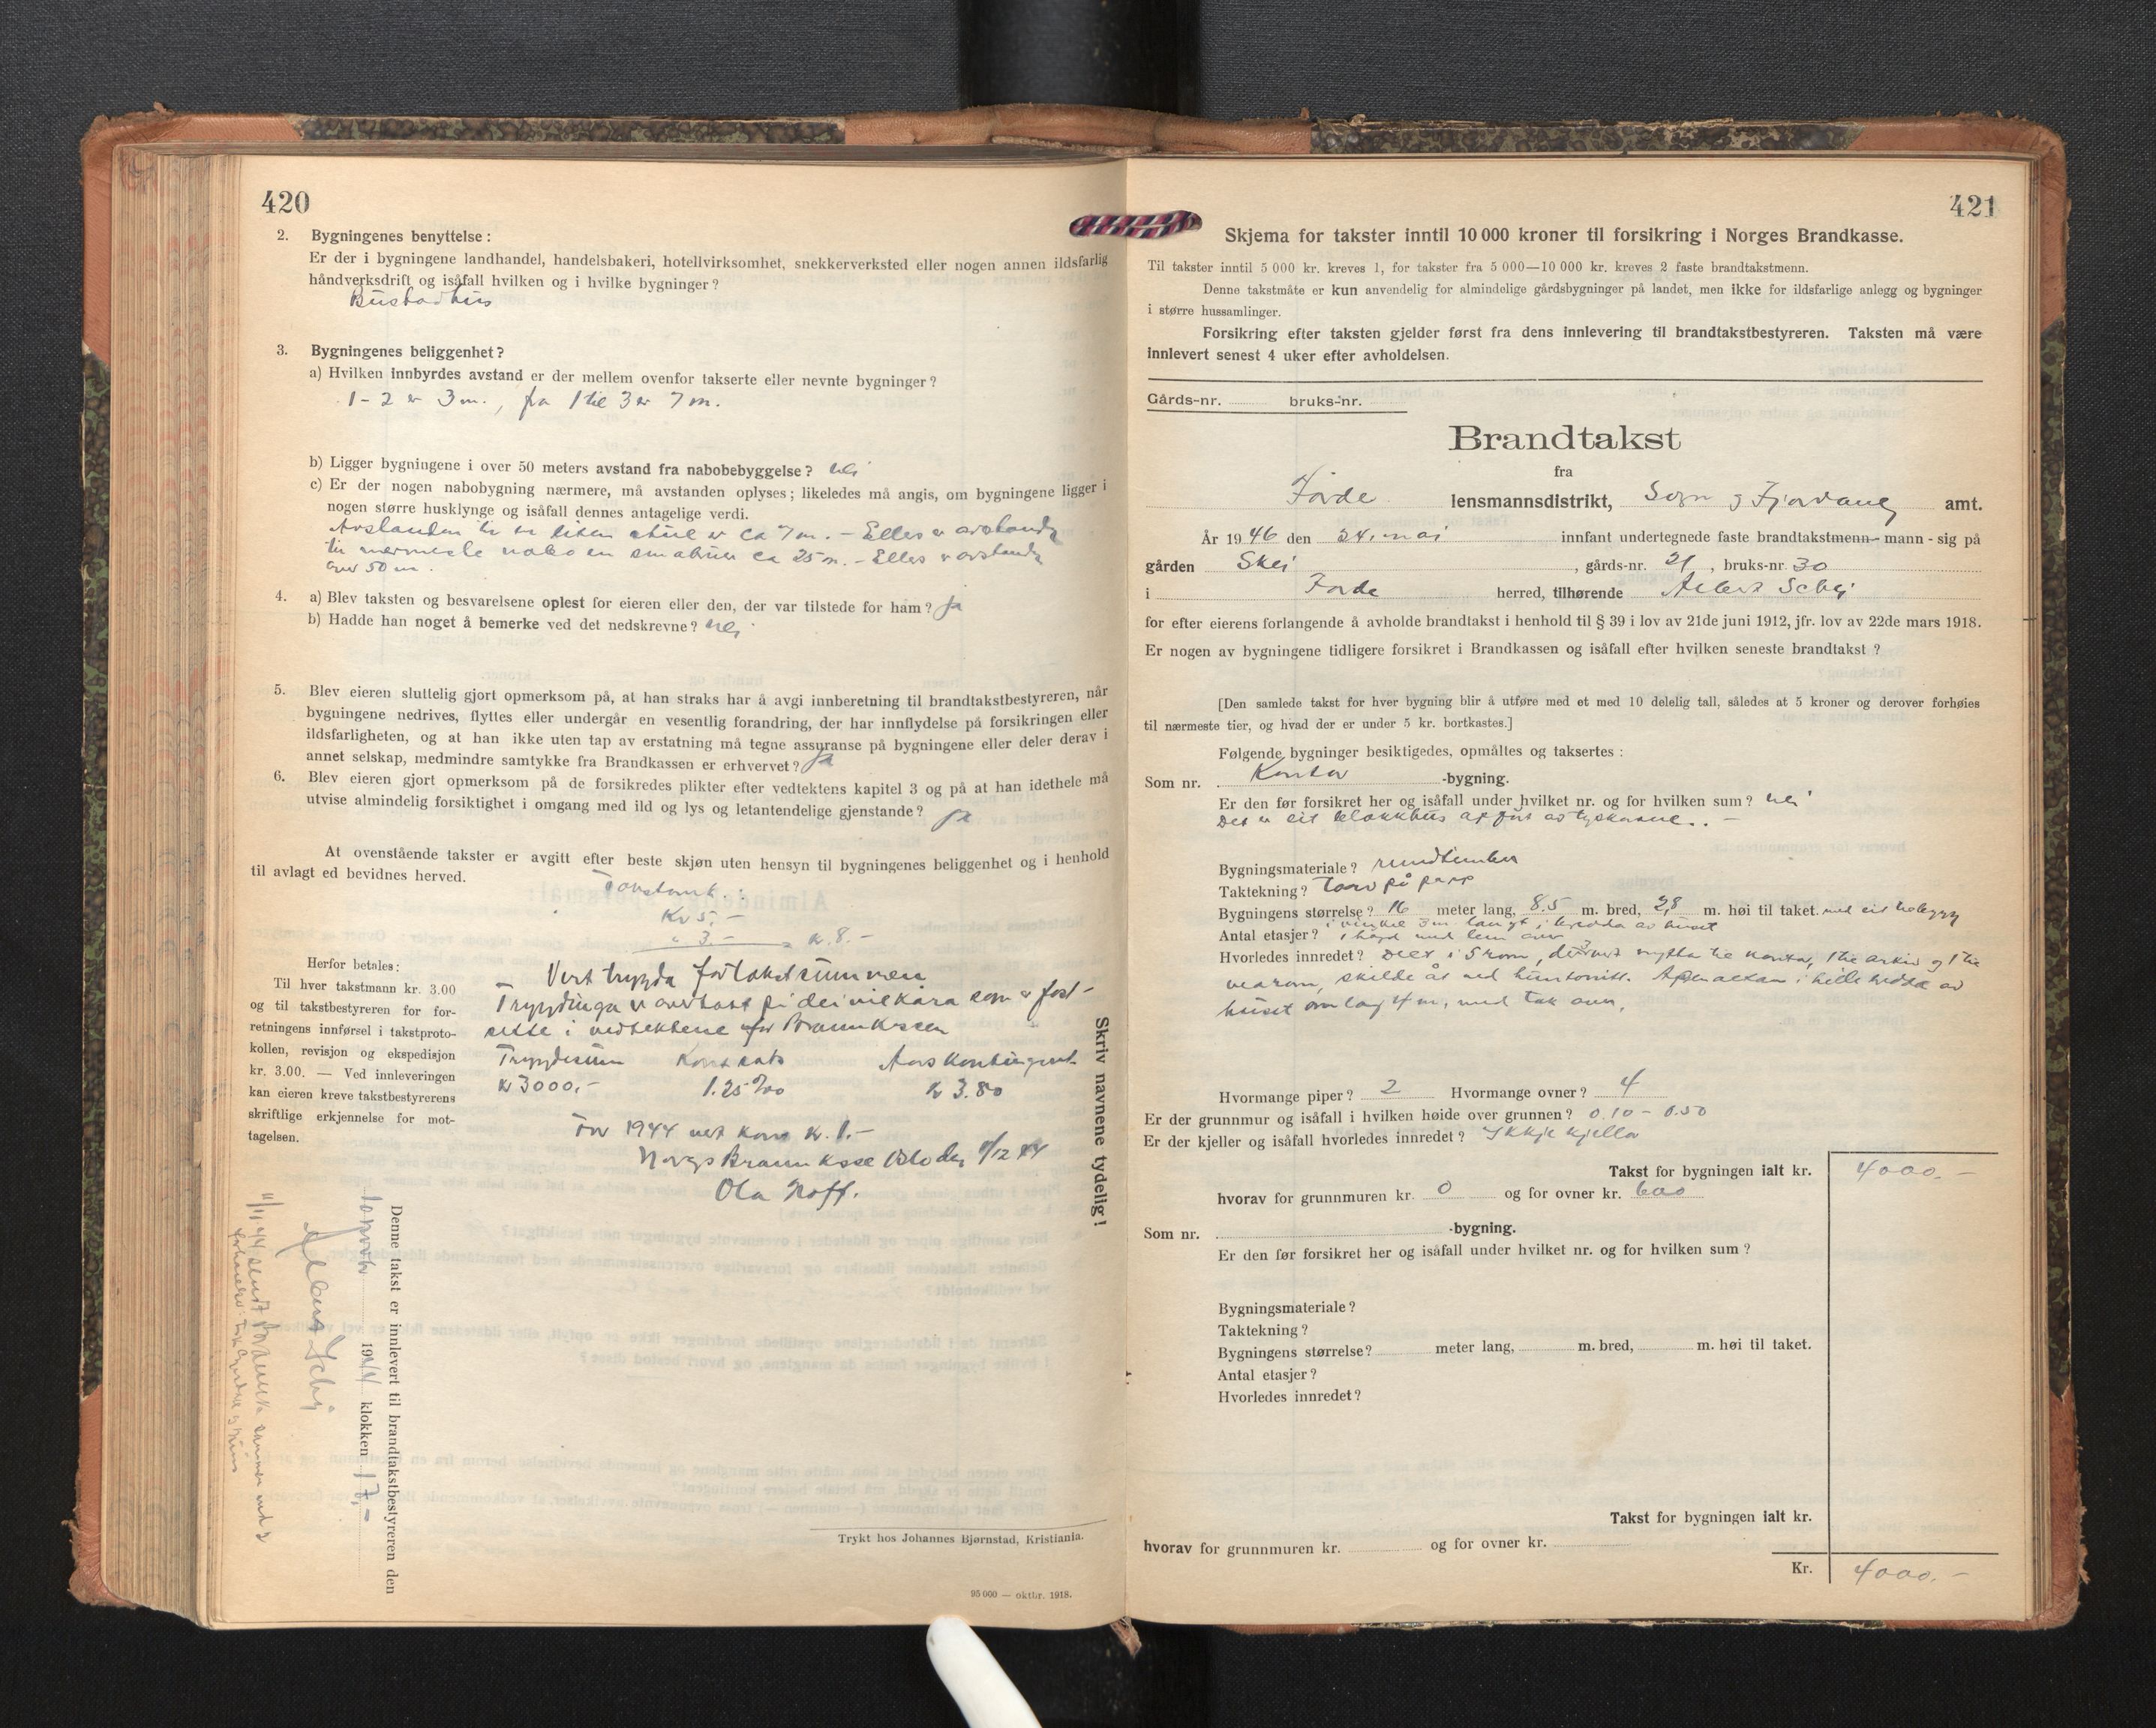 420
2. Bygningenes benyttelse:
Er der i bygningene landhandel, handelsbakeri, hotellvirksomhet, snekkerverksted eller nogen annen ildsfarlig
håndverksdrift og isåfall hvilken og i hvilke bygninger?
Bustadhus
3. Bygningenes beliggenhet?
a) Hvilken innbyrdes avstand er der mellem ovenfor takserte eller nevnte bygninger?
1-2 er 3 m., fra 1 til 3 er 7 m.
b) Ligger bygningene i over 50 meters avstand fra nabobebyggelse? Nei
c) Er der nogen nabobygning nærmere, må avstanden oplyses; likeledes må angis, om bygningene ligger i
nogen større husklynge og isåfall dennes antagelige verdi.
Avstanden til ein liten stul er ca 7 m. - Elles er avstanden
til nermeste nabo ca 25 m. - Elles er avstanden
over 50 m.
4. a) Blev taksten og besvarelsene oplest for eieren eller den, der var tilstede for ham? Ja
b) Hadde han noget å bemerke ved det nedskrevne? Nei
5. Blev eieren sluttelig gjort opmerksom på, at han straks har å avgi innberetning til brandtakstbestyreren, når
bygningene nedrives, flyttes eller undergår en vesentlig forandring, der har innflydelse på forsikringen eller
ildsfarligheten, og at han ikke uten tap av erstatning må tegne assuranse på bygningene eller deler derav i
annet selskap, medmindre samtykke fra Brandkassen er erhvervet? Ja
6. Blev eieren gjort opmerksom på de forsikredes plikter efter vedtektens kapitel 3 og på at han idethele må
utvise almindelig forsiktighet i omgang med ild og lys og letantendelige gjenstande? Ja
At ovenstående takster er avgitt efter beste skjøn uten hensyn til bygningenes beliggenhet og i henhold
til avlagt ed bevidnes herved.
Kr 5.-
" 3.- = kr. 8.-
Herfor betales:
Til hver takstmann kr. 3.00
og til takstbestyreren for for-
retningens innførsel i takstproto-
kollen, revisjon og ekspedisjon
kr. 3.00. — Ved innleveringen
kan eieren kreve takstbestyrerens
skriftlige erkjennelse for mot-
tagelsen.
Vert trygda for takstsummen
Trygdinga er overtatt på dei vilkåra som er fast-
sette i vedtektene for Brannkassen
Trygdesum Kont.sats Aarskontingent
kr 3000.- 1.25 ‰ kr 3.80
For 1944 vert kont kr. 1.-
Norges Brannkasse Oslo den 8/12 44
Ola Hoff.
Skriv navnene tydelig!
Denne takst er innlevert til brandtakstbestyreren den
10 novbr 1944 klokken 17,-
Albert Schei
11/11 44 sendt
Trykt hos Johannes Bjørnstad, Kristiania.
95 000 — oktbr. 1918.
421
Skjema for takster inntil 10 000 kroner til forsikring i Norges Brandkasse.
Til takster inntil 5 000 kr. kreves 1, for takster fra 5 000—10 000 kr. kreves 2 faste brandtakstmenn.
Denne takstmåte er kun anvendelig for almindelige gårdsbygninger på landet, men ikke for ildsfarlige anlegg og bygninger
i større hussamlinger.
Forsikring efter taksten gjelder først fra dens innlevering til brandtakstbestyreren. Taksten må være
innlevert senest 4 uker efter avholdelsen.
Gårds-nr. bruks-nr.
Brandtakst
fra
Førde lensmannsdistrikt, Sogn og Fjordane amt.
År 1946 den 24. mai innfant undertegnede faste brandtakstmenn- mann - sig på
gården Skei, gårds-nr. 21, bruks-nr. 30
i Førde herred, tilhørende Albert Schei
for efter eierens forlangende å avholde brandtakst i henhold til § 39 i lov av 21de juni 1912, jfr. lov av 22de mars 1918.
Er nogen av bygningene tidligere forsikret i Brandkassen og isåfall efter hvilken seneste brandtakst?
[Den samlede takst for hver bygning blir å utføre med et med 10 delelig tall, således at 5 kroner og derover forhøies
til nærmeste tier, og hvad der er under 5 kr. bortkastes.]
Følgende bygninger besiktigedes, opmåltes og taksertes:
Som nr. Kontor -bygning.
Er den før forsikret her og isåfall under hvilket nr. og for hvilken sum? Nei
Det er eit blokkhus oppført av tyskarane. -
Bygningsmateriale? rundtømmer
Taktekning? Torv på papp
Bygningens størrelse? 16 meter lang, 8.5 m. bred, 2,8 m. høi til taket. med eit tilbygg
i vinkel 3 m langt i breidda av huset
Antal etasjer? 1 høgd med lem over
Hvorledes innredet? Delt i 5 rom, derav 3 nytta til kontor, 1 til arkiv og 1 til
vedrom, skilde åt med huntonitt. Open altan i heile breidda av
huset om lag 4 m, med tak over.
Hvormange piper? 2 Hvormange ovner? 4
Er der grunnmur og isåfall i hvilken høide over grunnen? 0.10 - 0.50
Er der kjeller og isåfall hvorledes innredet? Ikkje kjellar
Takst for bygningen ialt kr. 4000.-
hvorav for grunnmuren kr. 0 og for ovner kr. 600
Som nr. -bygning.
Er den før forsikret her og isåfall under hvilket nr. og for hvilken sum?
Bygningsmateriale?
Taktekning?
Bygningens størrelse? meter lang, m. bred, m. høi til taket.
Antal etasjer?
Hvorledes innredet?
Takst for bygningen ialt kr.
hvorav for grunnmuren kr. og for ovner kr.
Kr. 4000.-